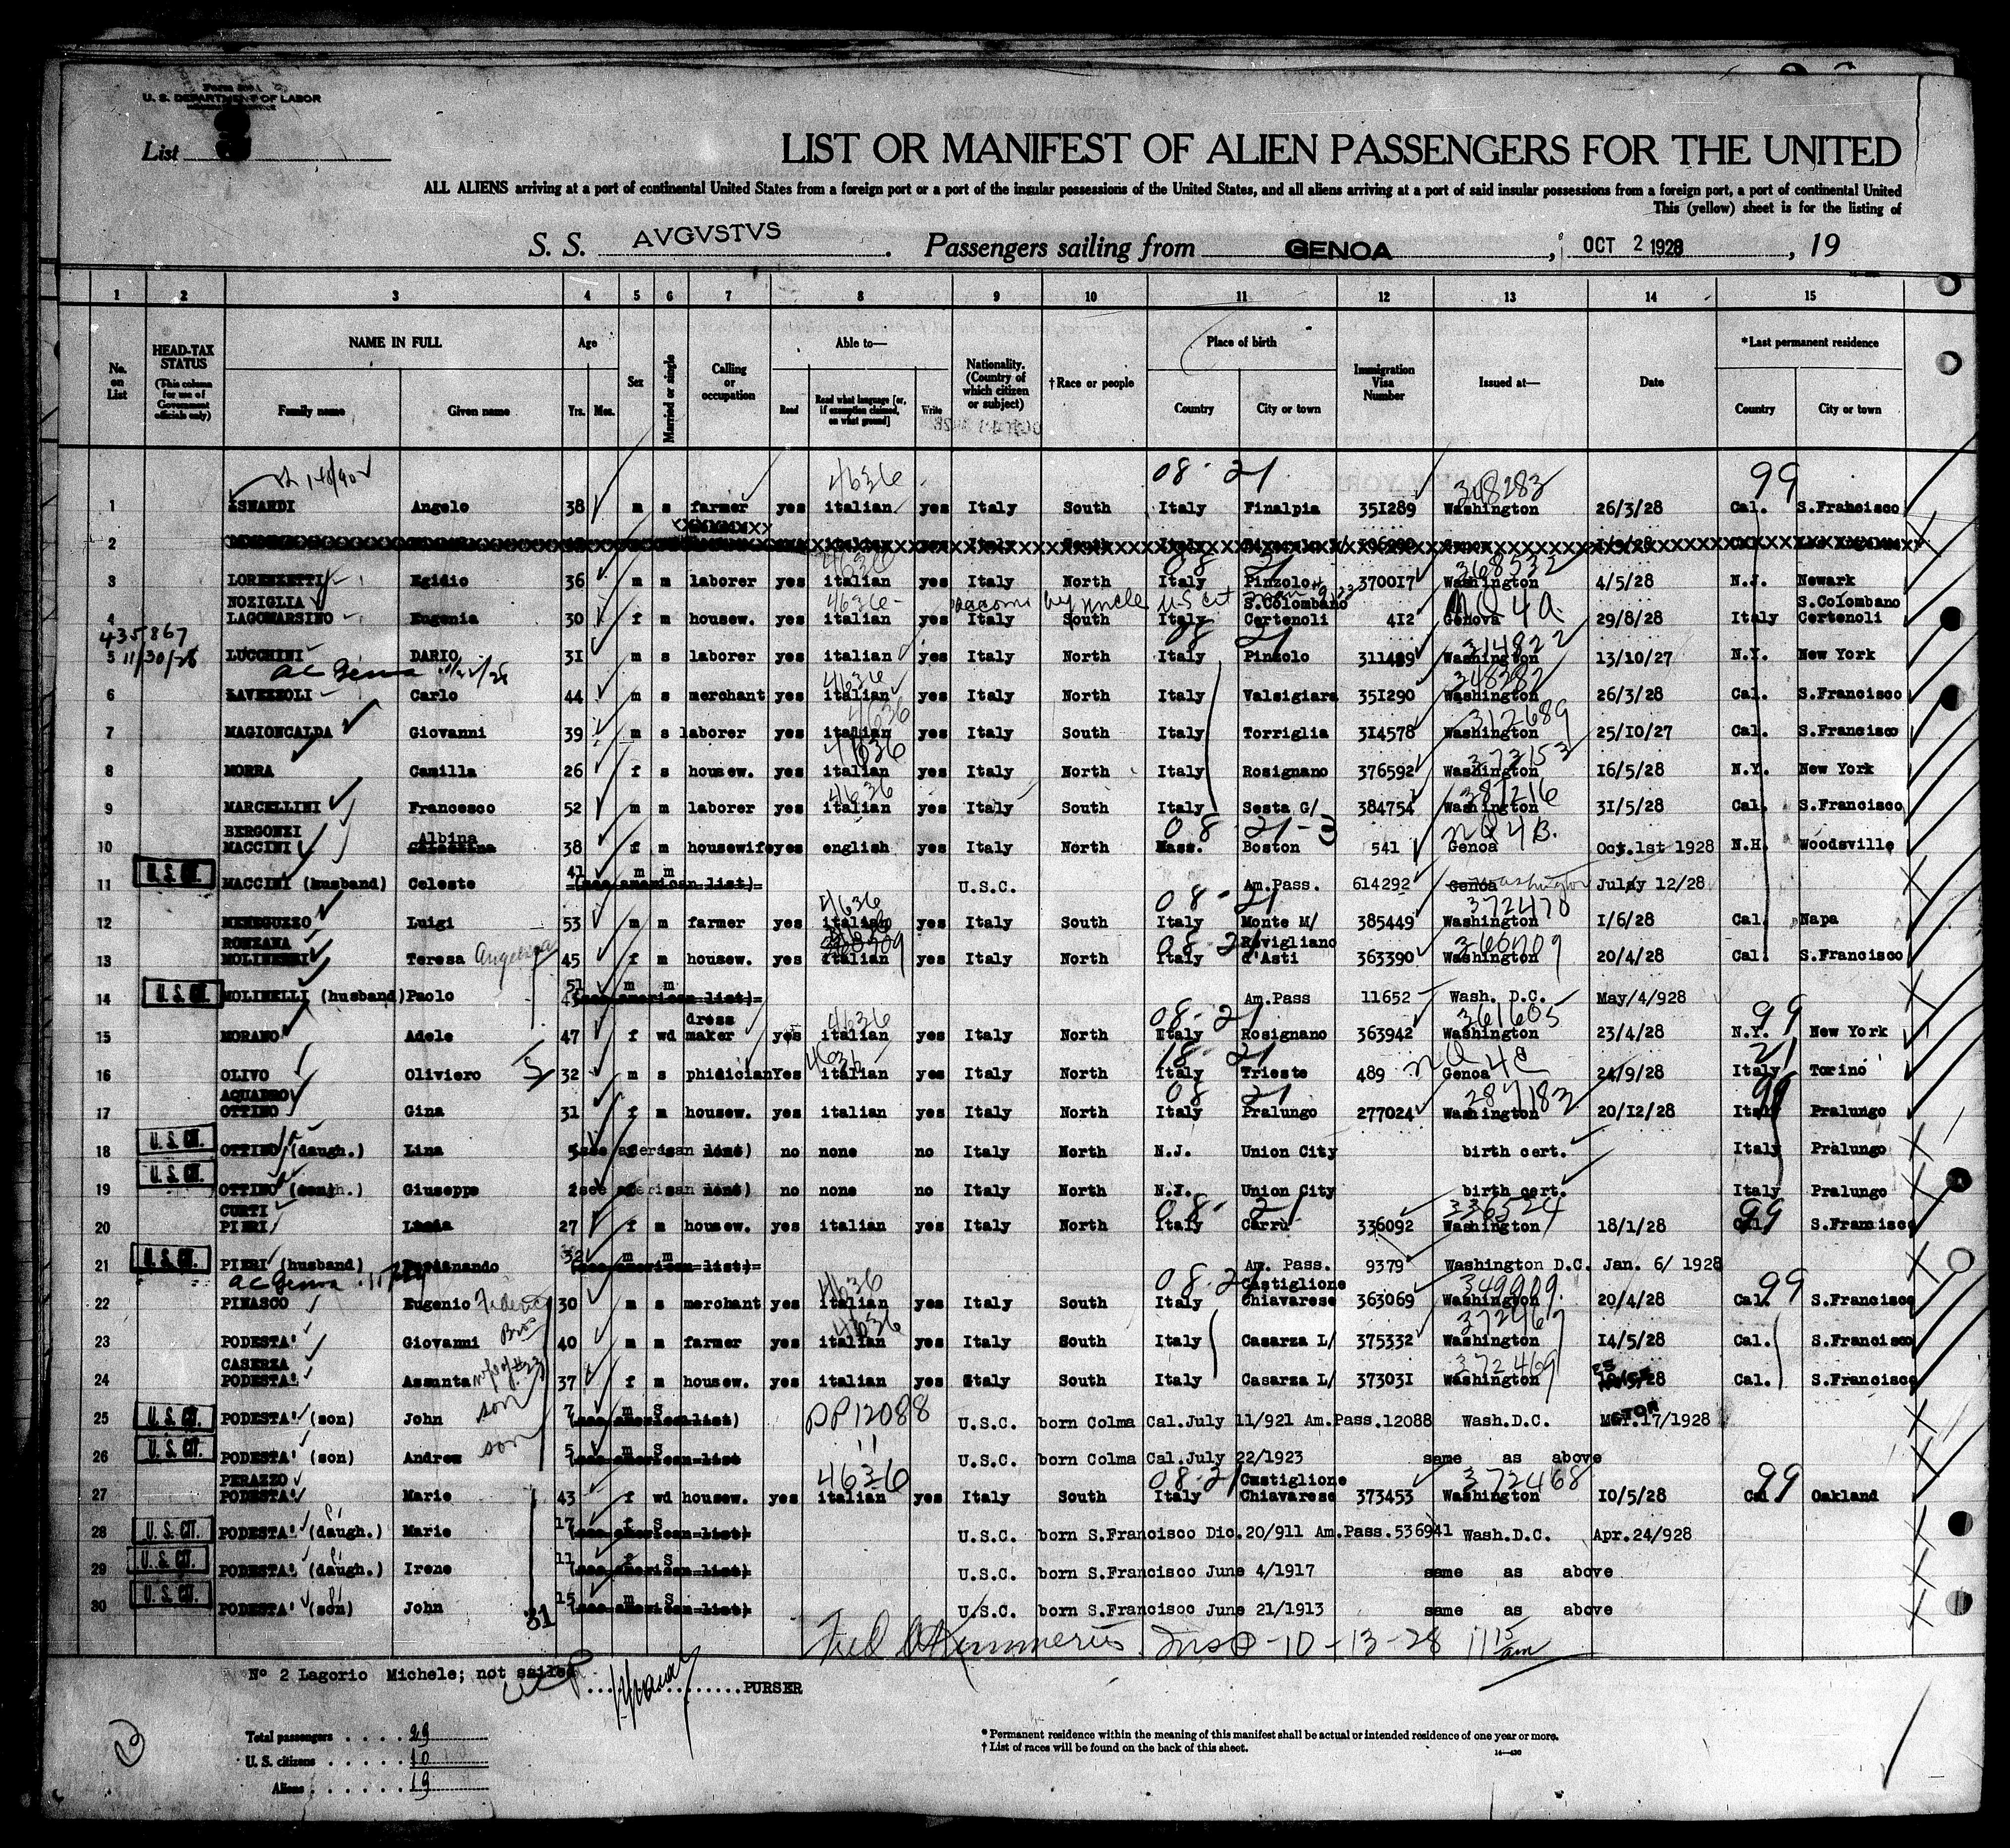 Form 500
U. S. DEPARTMENT OF LABOR
List 3
LIST OR MANIFEST OF ALIEN PASSENGERS FOR THE UNITED
ALL ALIENS arriving at a port of continental United States from a foreign port or a port of the insular possessions of the United States, and all aliens arriving at a port of said insular possessions from a foreign port, a port of continental United
This (yellow) sheet is for the listing of
S. S. AVGVSTVS. Passengers sailing from GENOA, OCT 2 1928, 19
1 2 3 4 5 6 7 8 9 10 11 12 13 14 15
No. on List
HEAD-TAX STATUS (This column for use of Government officials only)
NAME IN FULL Family name Given name
Age Yrs. Mos.
Sex
Married or single
Calling or occupation
Able to— Read Read what language [or, if exemption claimed, on what ground] Write
Nationality. (Country of which citizen or subject)
†Race or people
Place of birth Country City or town
Immigration Visa Number
Issued at—
Date
*Last permanent residence Country City or town
4636 08-21 348283 99
1 ISNARDI Angelo 38 m s farmer yes italian yes Italy South Italy Finalpia 351289 Washington 26/3/28 Cal. S.Francisco
2
4636 08 21 368532
3 LORENZETTI Egidio 36 m m laborer yes italian yes Italy North Italy Pinzolo 370017 Washington 4/5/28 N.J. Newark
NOZIGLIA 4636 by uncle U.S cit S.Colombano NQ 4a S.Colombano
4 LAGOMARSINO Eugenia 30 f m housew. yes italian yes Italy South Italy Certenoli 412 Genova 29/8/28 Italy Certenoli
435867 08 21 314822
5 11/30/28 LUCCHINI DARIO 31 m s laborer yes italian yes Italy North Italy Pinzolo 311489 Washington 13/10/27 N.Y. New York
4636 348282
6 LAVEZZOLI Carlo 44 m s merchant yes italian yes Italy North Italy Valsigiara 351290 Washington 26/3/28 Cal. S.Francisco
4636 312689
7 MAGIONCALDA Giovanni 39 m s laborer yes italian yes Italy South Italy Torriglia 314578 Washington 25/10/27 Cal. S.Francisco
4636 372153
8 MORRA Camilla 26 f s housew. yes italian yes Italy North Italy Rosignano 376592 Washington 16/5/28 N.Y. New York
4636 387216
9 MARCELLINI Francesco 52 m m laborer yes italian yes Italy South Italy Sesta G/ 384754 Washington 31/5/28 Cal. S.Francisco
BERGONZI Albina 08 21-3 NQ 4B.
10 MACCINI 38 f m housewife yes english yes Italy North Mass. Boston 541 Genoa Oct.1st 1928 N.H. Woodsville
U. S. CIT.
11 MACCINI (husband) Celeste 41 m m (see american list) U.S.C. Am.Pass. 614292 Genoa Washington July 12/28
4636 08-21 372478
12 MENEGUZZO Luigi 53 m m farmer yes italian yes Italy South Italy Monte M/ 385449 Washington 1/6/28 Cal. Napa
RONZANA 08 21 Rovigliano 366709
13 MOLINELLI Teresa 45 f m housew. yes italian yes Italy North Italy d'Asti 363390 Washington 20/4/28 Cal. S.Francisco
U. S. CIT.
14 MOLINELLI (husband) Paolo 51 m m (see american list) Am.Pass 11652 Wash. D.C. May/4/928
dress 4636 08-21 361605 99
15 MORANO Adele 47 f wd maker yes italian yes Italy North Italy Rosignano 363942 Washington 23/4/28 N.Y. New York
4636 18-21 NQ 4C 21
16 OLIVO Oliviero 32 m s phidician Yes italian yes Italy North Italy Trieste 489 Genoa 24/9/28 Italy Torino
AQUADRO 08 21 287183 99
17 OTTINO Gina 31 f m housew. yes italian yes Italy North Italy Pralungo 277024 Washington 20/12/28 Italy Pralungo
U. S. CIT.
18 OTTINO (daugh.) Lina 5 (see american list) no none no Italy North N.J. Union City birth cert. Italy Pralungo
U. S. CIT.
19 OTTINO Giuseppe 2 (see american list) no none no Italy North N.J. Union City birth cert. Italy Pralungo
CURTI 08-21 336324 99
20 PIERI Lucia 27 f m housew. yes italian yes Italy North Italy Carrù 336092 Washington 18/1/28 Cal. S.Francisco
U. S. CIT.
21 PIERI (husband) Ferdinando 32 m m (see american list) Am. Pass. 9379 Washington D.C. Jan. 6/ 1928
4636 08-21 Castiglione 349909 99
22 PINASCO Eugenio 30 m s merchant yes italian yes Italy South Italy Chiavarese 363069 Washington 20/4/28 Cal. S.Francisco
4636 372467
23 PODESTA' Giovanni 40 m m farmer yes italian yes Italy South Italy Casarza L/ 375332 Washington 14/5/28 Cal. S.Francisco
CASERZA wife of #23 372469
24 PODESTA' Assunta 37 f m housew. yes italian yes Italy South Italy Casarza L/ 373031 Washington Cal. S.Francisco
U. S. CIT. son PP12088
25 PODESTA' (son) John 7 m S (see american list) U.S.C. born Colma Cal.July 11/921 Am.Pass.12088 Wash.D.C. Mar.17/1928
U. S. CIT. son "
26 PODESTA' (son) Andrew 5 m S (see american list U.S.C. born Colma Cal.July 22/1923 same as above
PERAZZO 4636 08-21 Castiglione 372468 99
27 PODESTA' Marie 43 f wd housew. yes italian yes Italy South Italy Chiavarese 373453 Washington 10/5/28 Cal Oakland
U. S. CIT.
28 PODESTA' (daugh.) Marie 17 f S (see american list) U.S.C. born S.Francisco Dic.20/911 Am.Pass.536941 Wash.D.C. Apr.24/928
U. S. CIT.
29 PODESTA' (daugh.) Irene 11 f S (see american list) U.S.C. born S.Francisco June 4/1917 same as above
U. S. CIT.
30 PODESTA' (son) John 15 m S (see american list) U.S.C. born S.Francisco June 21/1913 same as above
31
10-13-28 11 15 am
No 2 Lagorio Michele; not sailed
PURSER
Total passengers . . . . 29
U. S. citizens . . . . . 10
Aliens . . . . . . 19
* Permanent residence within the meaning of this manifest shall be actual or intended residence of one year or more.
† List of races will be found on the back of this sheet.
14—430